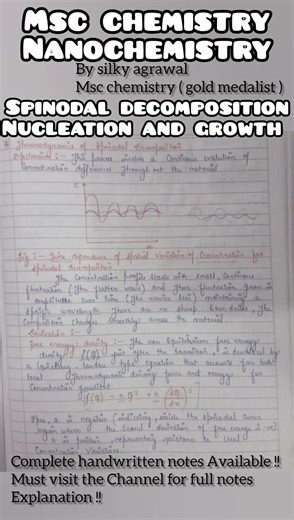 MSC CHEMISTRY
NANOCHEMISTRY
By silky agrawal
Msc chemistry ( gold medalist )
SPINODAL DECOMPOSITION
NUCLEATION AND GROWTH
Thermodynamics of Spinodal Decomposition
Mechanism :- This process involve a Continous evolution of
Concentration difference throughout the material
C
Fig :- Time dependence of spatial Variation of Concentration for
spinodal decomposition
The Concentration profile starts with small, Continous
fluctuation (The flatter wave) and these fluctuation grow in
amplitude over time (The wavier line) maintaining a
wavelength. There are no sharp boundaries, the
Composition changes smoothly across the material
free energy density :- The Non Equilibrium free energy
density f(Q), just after the transition, is described by
a Ginzburg - Landau type Equation that accounts for both
local thermodynamic driving force and energy for
Concentration gradient
Here, a is negative (indicating inside the spinodal curve
region where the second derivative of free energy is -ve)
is positive, representing resistance to local
Concentration Variation
Complete handwritten notes Available !!
Must visit the Channel for full notes
Explanation !!